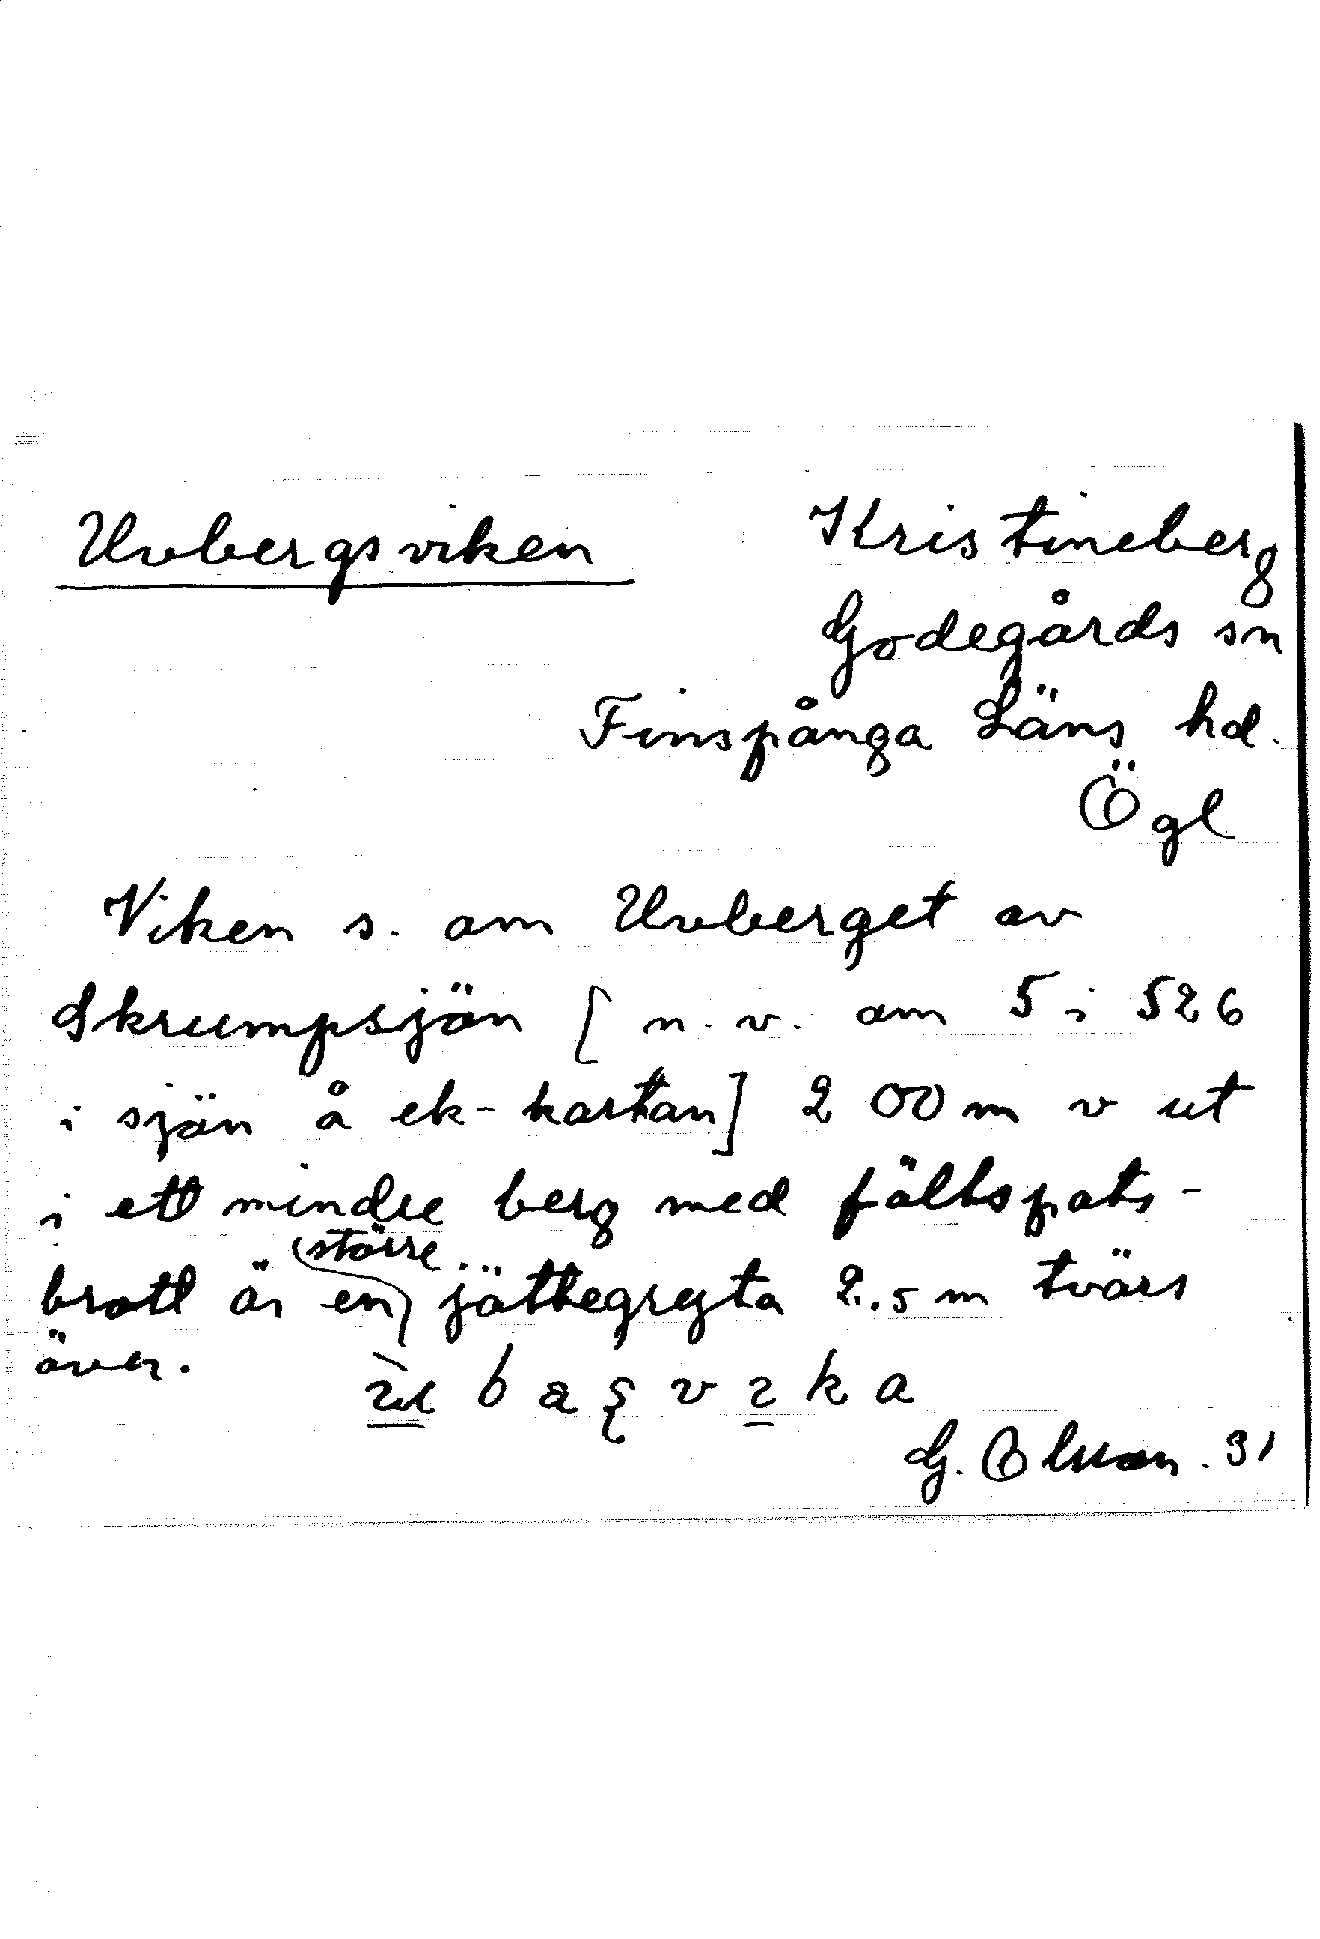 Uvbergsviken
Kristineberg
Godegårds sn
Finspånga Läns hd.
Ögl
Viken s. om Uvberget av
Skrumpsjön [n.v. om 5 i 526
i sjön å ek-kartan] 200 m v ut
i ett mindre berg med fältspats-
brott är en större jättegryta 2.5 m tvärs
över.
G. Olsson. 31